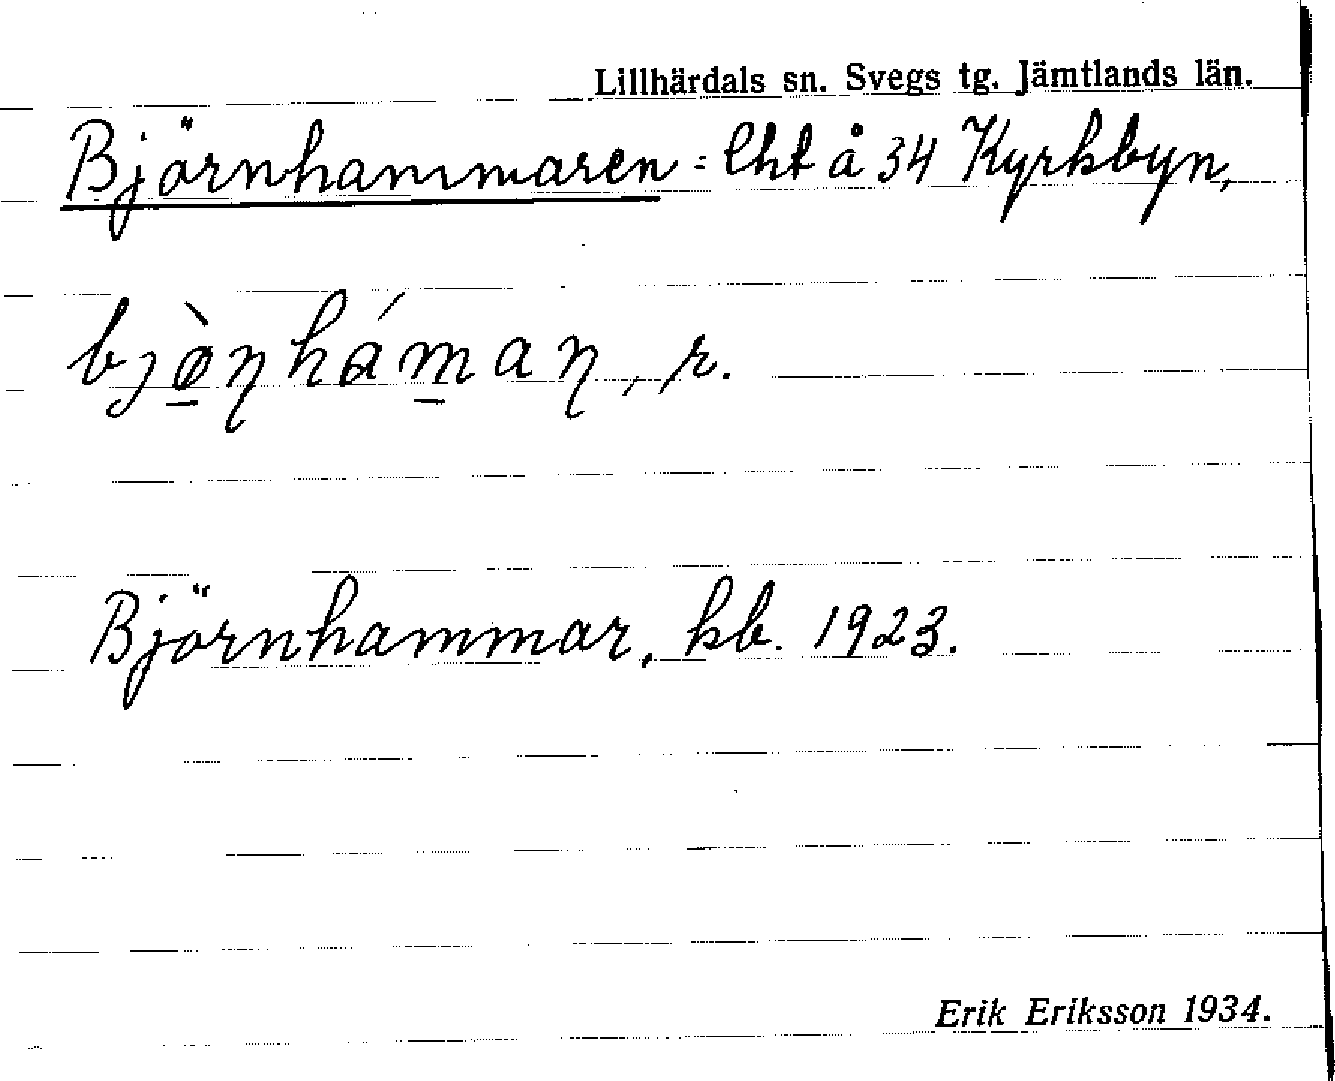 Lillhärdals sn. Svegs tg. Jämtlands län.
Björnhammaren = lht å 34 Kyrkbyn,
bjø̀ṇháman, r.
Björnhammar, kb. 1923.
Erik Eriksson 1934.